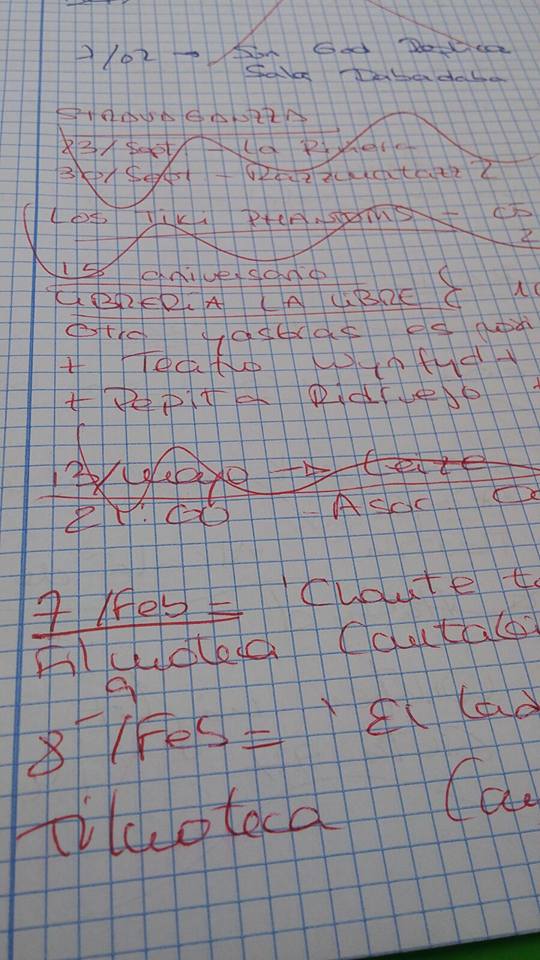 7/02 → Sun God Replica
Sala Dabadaba
STRAVAGANZZA
23/Sept - La Riviera
30/Sept - Razzmatazz 2
LOS TIKI PHANTOMS - 05
2
15 aniversario
LIBRERIA LA LIBRE { 10
Otro es
+ Teatro Wynfyd +
+ Pepita +
13/Mayo →
21:00 - Asoc. Co
7/Feb = '
Filmoteca Canta
8 /Feb = ' El lad
Filmoteca (Can